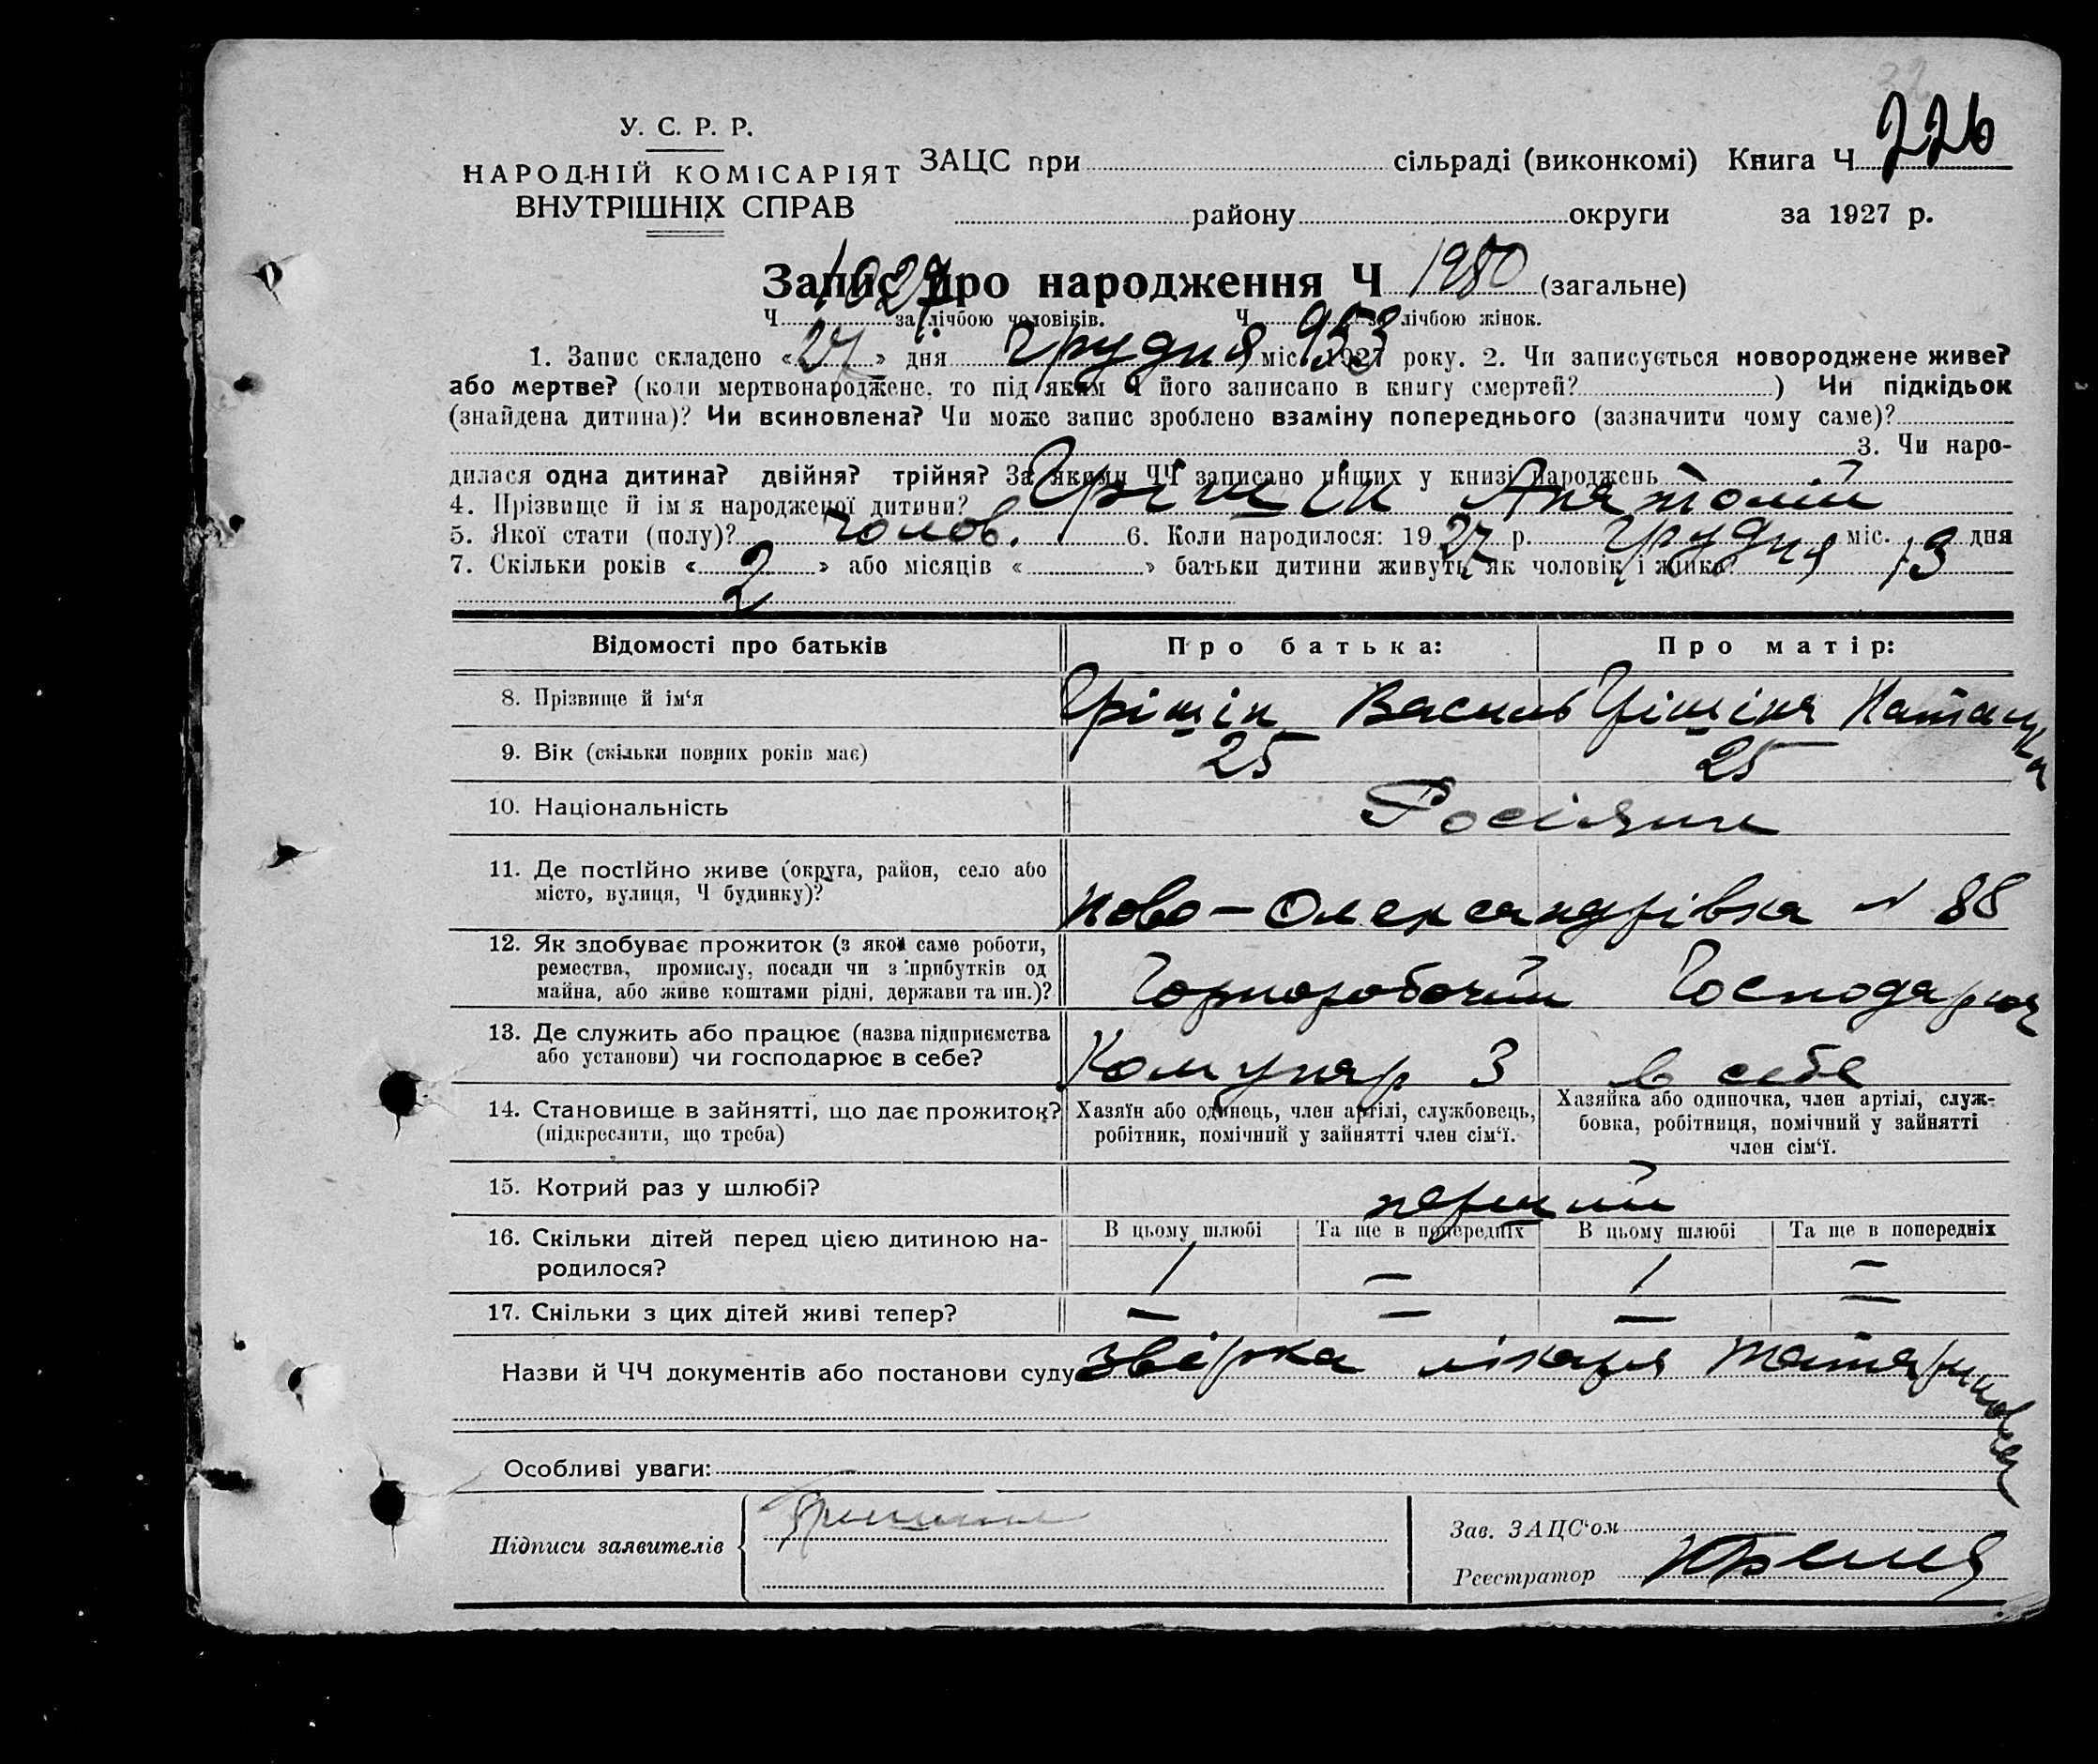 У. С. Р. Р.
НАРОДНІЙ КОМІСАРІЯТ
ВНУТРІШНІХ СПРАВ
ЗАЦС при сільраді (виконкомі) Книга Ч 226
району округи за 1927 р.
Запис про народження Ч 1980 (загальне)
Ч 1027 за лічбою чоловіків. Ч 953 за лічбою жінок.
1. Запис складено «27» дня Грудня міс. 1927 року. 2. Чи записується новороджене живе?
або мертве? (коли мертвонароджене, то під яким Ч його записано в книгу смертей? ) Чи підкідьок
(знайдена дитина)? Чи всиновлена? Чи може запис зроблено взаміну попереднього (зазначити чому саме)?
3. Чи наро-
дилася одна дитина? двійня? трійня? За якими ЧЧ записано инших у книзі народжень
4. Прізвище й ім'я народженої дитини? Грішін Анатолій
5. Якої стати (полу)? чолов. 6. Коли народилося: 1927 р. Грудня міс. 13 дня
7. Скільки років «2» або місяців « » батьки дитини живуть як чоловік і жінка?
Відомості про батьків Про батька: Про матір:
8. Прізвище й ім'я Грішін Василь Грішіна
9. Вік (скільки повних років має) 25 25
10. Національність Росіяни
11. Де постійно живе (округа, район, село або
місто, вулиця, Ч будинку)? Ново-Олександрівка № 88
12. Як здобуває прожиток (з якої саме роботи,
ремества, промислу, посади чи з прибутків од
майна, або живе коштами рідні, держави та ин.)? Чорноробочий Господарює
13. Де служить або працює (назва підприємства
або установи) чи господарює в себе? Комунар 3 в себе
14. Становище в зайнятті, що дає прожиток?
(підкреслити, що треба)
Хазяїн або одинець, член артілі, службовець,
робітник, помічний у зайнятті член сім'ї.
Хазяйка або одиночка, член артілі, служ-
бовка, робітниця, помічний у зайнятті
член сім'ї.
15. Котрий раз у шлюбі? перший
16. Скільки дітей перед цією дитиною на-
родилося?
В цьому шлюбі Та ще в попередніх В цьому шлюбі Та ще в попередніх
1 — 1 —
17. Скільки з цих дітей живі тепер? — — — —
Назви й ЧЧ документів або постанови суду звірка лікаря
Особливі уваги:
Підписи заявителів
Зав. ЗАЦС'ом
Реєстратор